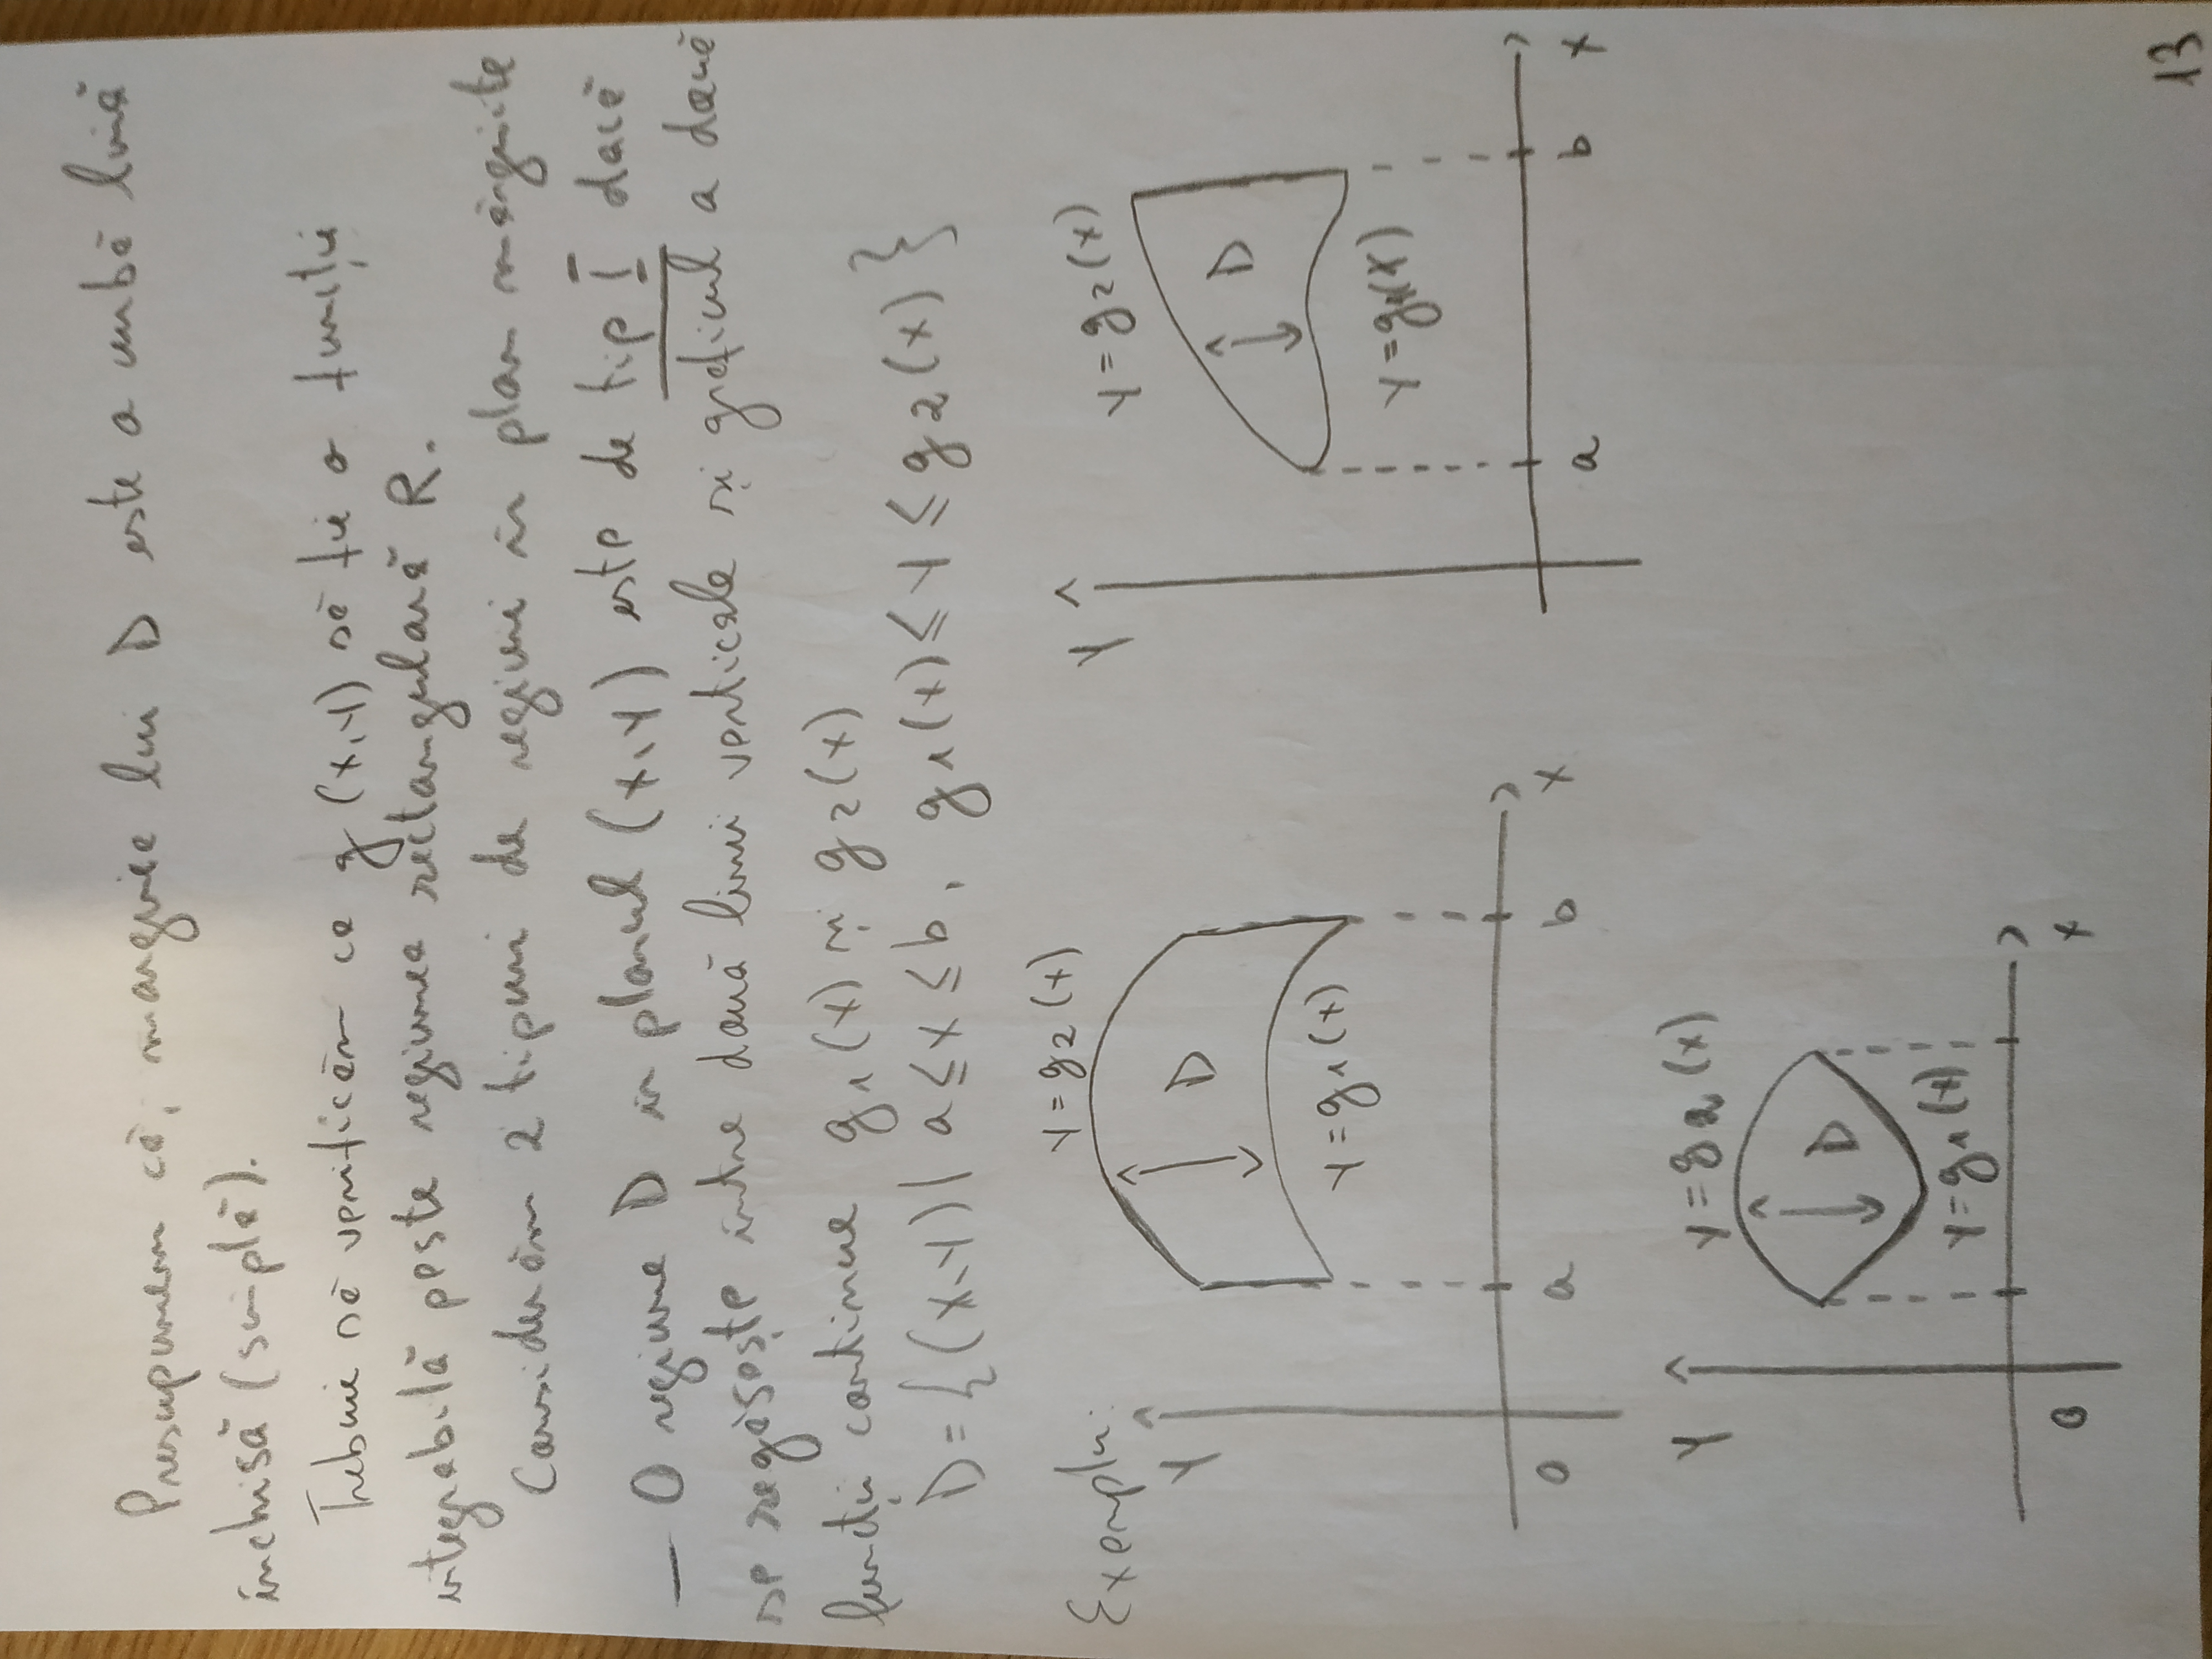 Presupunem că, marginea lui D este o curbă lină
închisă (simplă).
Trebuie să verificăm ca g (x,y) să fie o funcție
integrabilă peste regiunea rectangulară R.
Considerăm 2 tipuri de regiuni în plan mărginite
— O regiune D în planul (x,y) este de tip I dacă
se regăsește între două linii verticale și graficul a două
funcții continue g1(x) și g2(x)
D = {(x,y) | a ≤ x ≤ b, g1(x) ≤ y ≤ g2(x)}
Exemplu:
y = g2(x)
Y
D
y = g1(x)
0 a b x
Y
y = g2(x)
D
y = g1(x)
a b x
Y
y = g2(x)
D
y = g1(x)
0 x
13